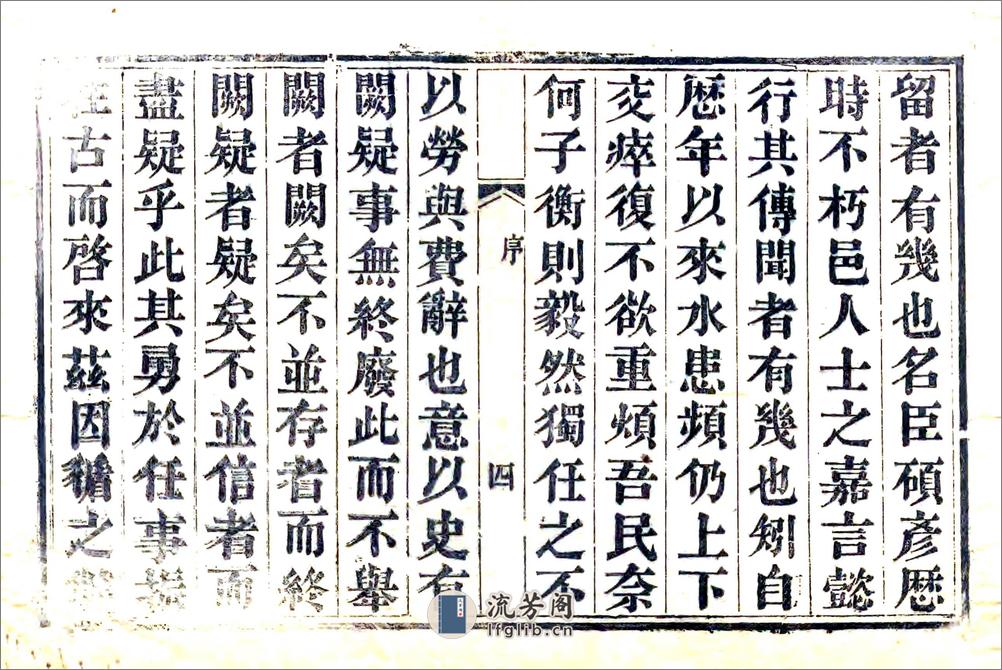 留者有幾也名臣碩彥歷
時不朽邑人士之嘉言懿
行其傳聞者有幾也矧自
歷年以來水患頻仍上下
交瘁復不欲重煩吾民奈
何子衡則毅然獨任之不
序 四
以勞與費辭也意以史有
闕疑事無終廢此而不舉
闕者闕矣不並存者而終
闕疑者疑矣不並信者而
盡疑乎此其勇於任事振
古而啓來茲因循之
流芳阁
lfglib.cn